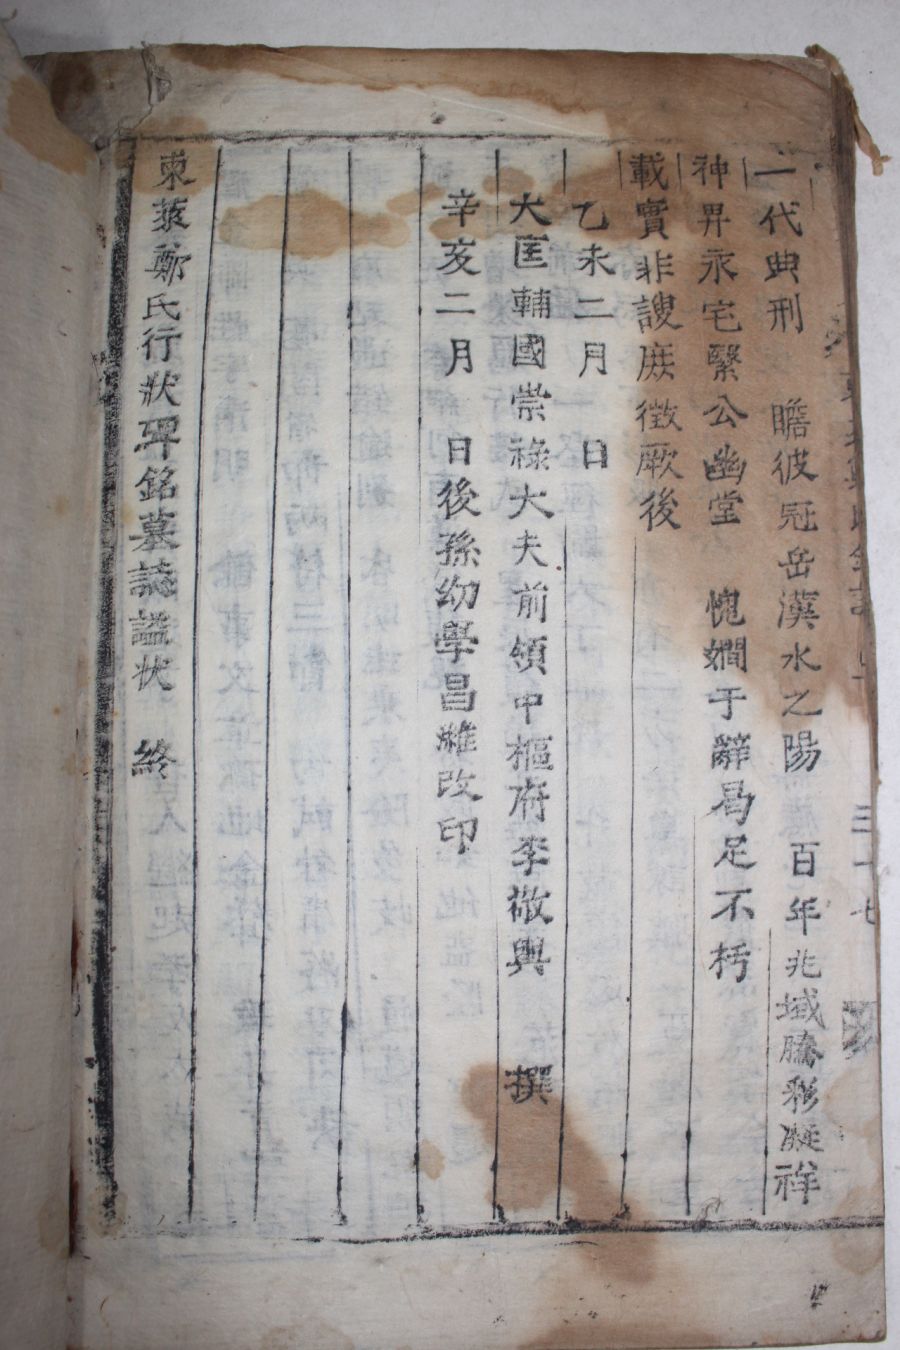 一代典刑 瞻彼冠岳漢水之陽 百年兆域騰彩凝祥
神畀永宅繄公幽堂 愧嫺于辭曷足不朽
載實非諛庶徵厥後
乙未二月 日
大匡輔國崇祿大夫前領中樞府李敬輿 撰
辛亥二月 日後孫幼學昌雒改印
東萊鄭氏行狀碑銘墓誌謚狀 終
三十七